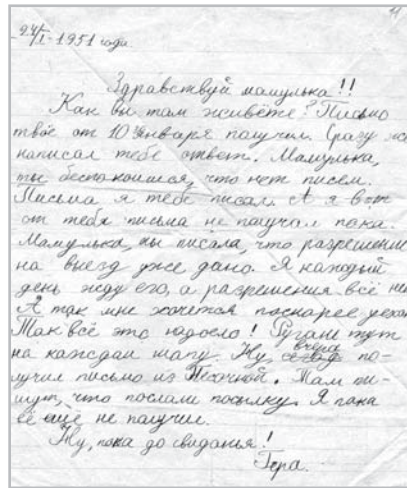 24/I-1951 года
Здравствуй мамулька!!
Как вы там живёте? Письмо
твоё от 10 Января получил. Сразу же
написал тебе ответ. Мамулька,
ты беспокоишся, что нет писем.
Письма я тебе писал. А я вот
от тебя письма не получал пока.
Мамулька, ты писала, что разрешение
на выезд уже дано. Я каждый
день жду его, а разрешения всё нет
А так мне хочется поскорее уехать
Так всё это надоело! Ругань тут
на каждом шагу. Ну, вчера по-
лучил письмо из Песочной. Там пи-
шут, что послали посылку. Я пока
её ещё не получил.
Ну, пока до свиданья!
Гера.